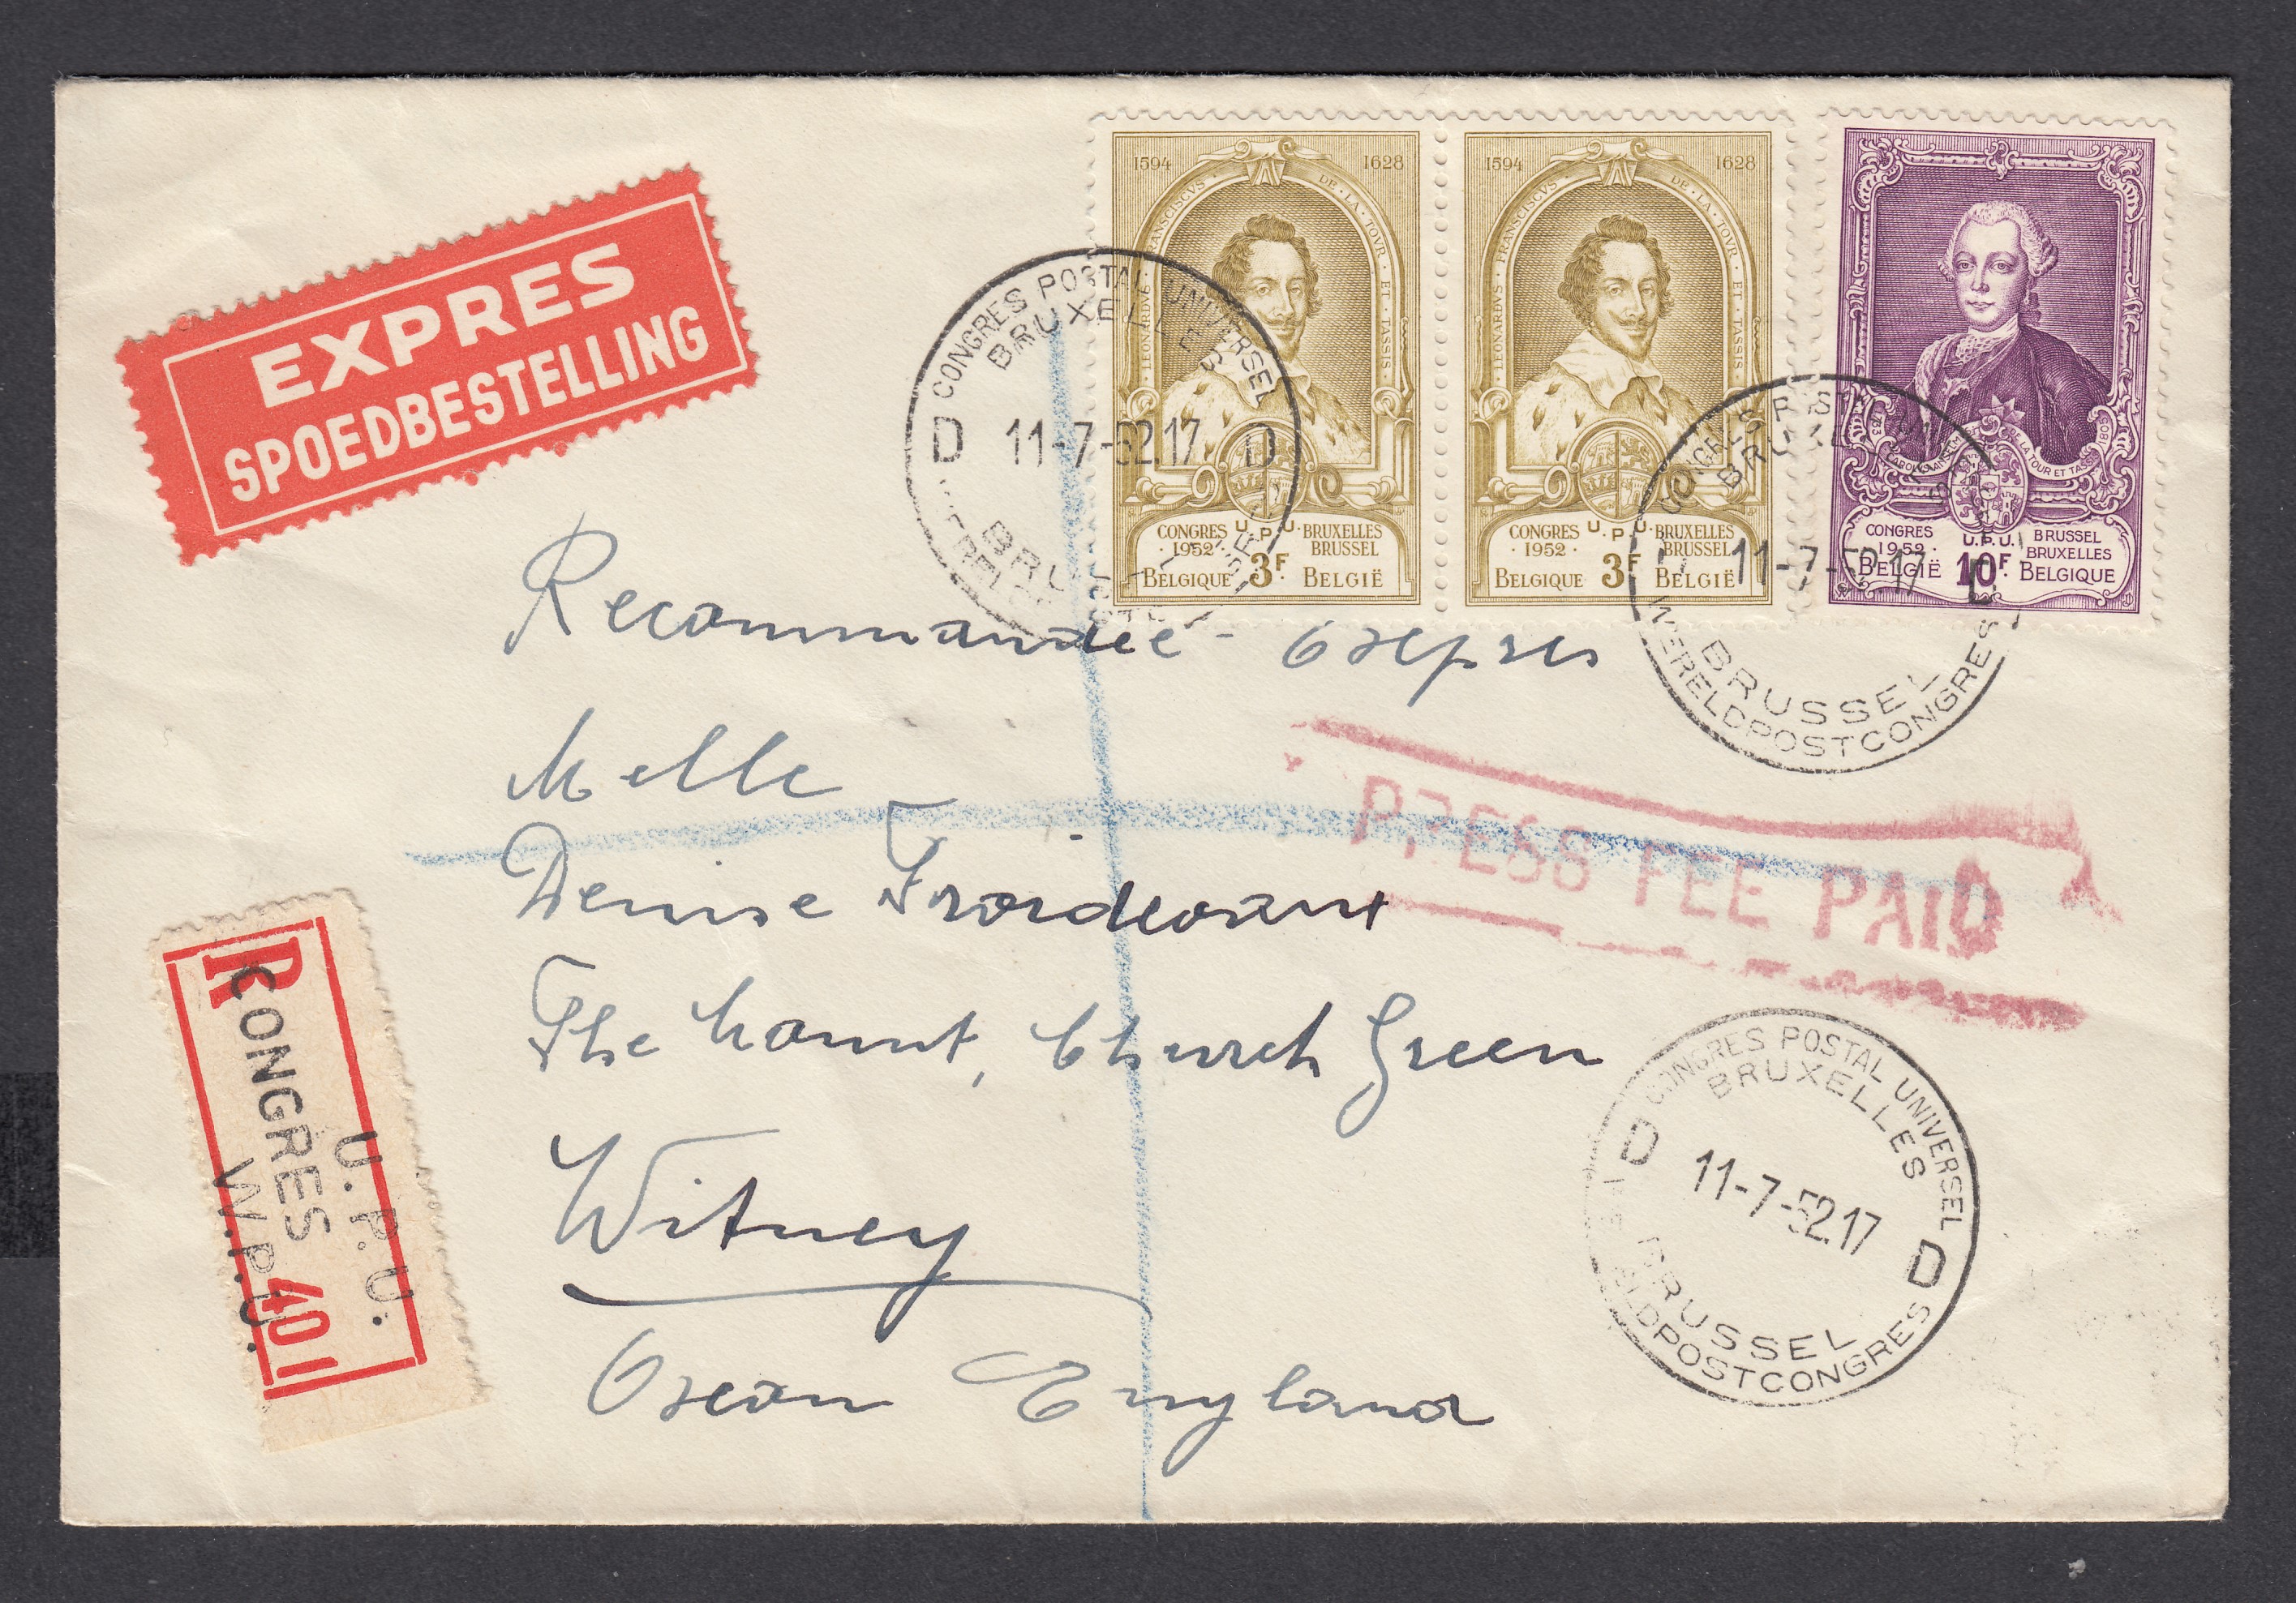 EXPRES
SPOEDBESTELLING
1594 1628
LEONARDVS · FRANCISCVS · DE · LA · TOVR · ET · TASSIS
CONGRES U.P.U. BRUXELLES
· 1952 · BRUSSEL
BELGIQUE 3F BELGIË
1594 1628
LEONARDVS · FRANCISCVS · DE · LA · TOVR · ET · TASSIS
CONGRES U.P.U. BRUXELLES
· 1952 · BRUSSEL
BELGIQUE 3F BELGIË
DE LA TOUR ET TAS
1805
CONGRES U.P.U. BRUSSEL
1952 · BRUXELLES
BELGIË 10F. BELGIQUE
CONGRES POSTAL UNIVERSEL
BRUXELLES
D 11-7-52.17 D
CONGRES
BRUX
11-7-52 17
BRUSSEL
WERELDPOSTCONGRES
Recommandée - Expres
Melle
Denise
The Mount, Church Green
Witney
Oxon England
PRESS FEE PAID
R
U.P.U.
CONGRES
W.P.U.
40
CONGRES POSTAL UNIVERSEL
BRUXELLES
D 11-7-52.17 D
BRUSSEL
LDPOSTCONGRES